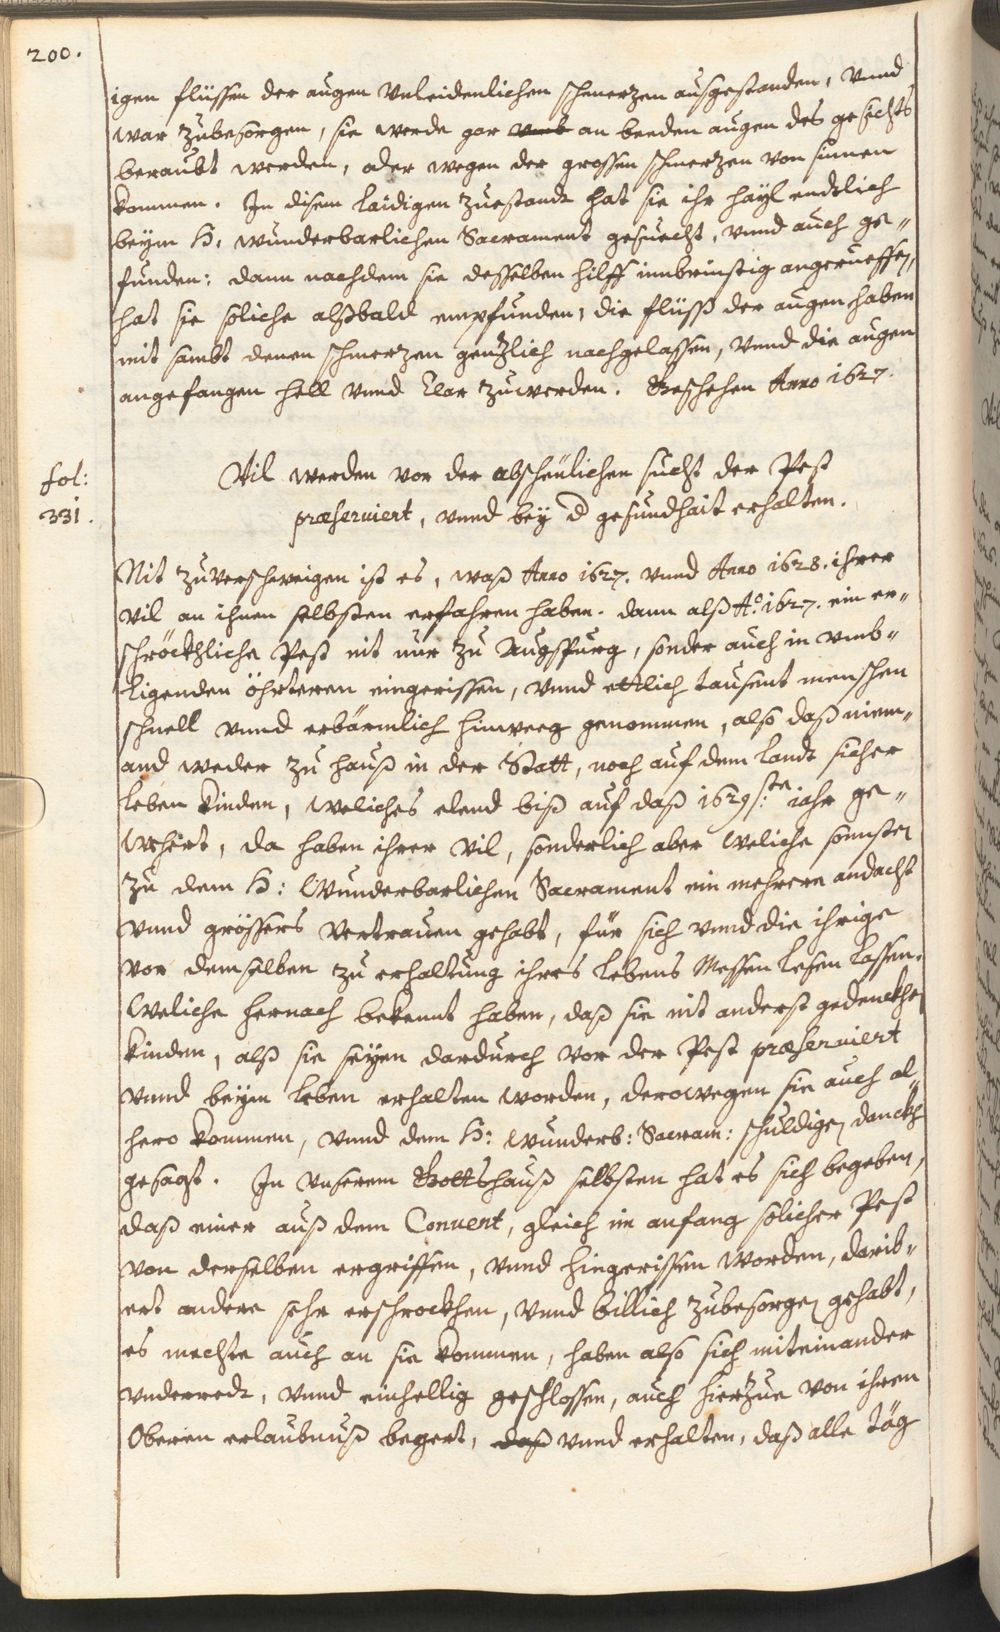 200.
igen flüssen der augen unleidenlichen schmerzen ausgestanden, vnnd
war zubesorgen, sie werde gar vmb an beeden augen des gesichts
beraubt werden, oder wegen der grossen schmertzen von sinnen
kommen. In disem laidigen zuestandt hat sie ihr hayl endtlich
beÿm H: wunderbarlichen Sacrament gesuecht, vnnd auch ge„
funden: dann nachdem sie desselben hilff innbrinstig angerueffen,
hat sie soliche alßbald empfunden, die flüß der augen haben
mit sambt denen schmerzen gentzlich nachgelassen, vnnd die augen
angefangen hell vnnd klar zuwerden. Geschehen Anno 1627.
fol:
331.
Vil werden vor der abscheülichen sucht der Pest
præseruiert, vnnd beÿ d gesundhait erhalten.
Nit zuverschweigen ist es, waß Anno 1627. vnnd Anno 1628. ihrer
vil an ihnen selbsten erfahren haben. dann alß Aº. 1627. ein er„
schröckhliche Pest nit nur zu Augspurg, sonder auch in vmb„
ligenden öhrteren eingerissen, vnnd ettlich tausent menschen
schnell vnnd erbärmlich hinweeg genommen, also daß niem„
and weder zu hauß in der Statt, noch auf dem landt sicher
leben kinden, weliches elend biß auf daß 1629:ste iahr ge„
wehrt, da haben ihrer vil, sonderlich aber weliche sonsten
zu dem H: Wunderbarlichen Sacrament ein mehrere andacht
vnnd grössers vertrauen gehabt, für sich vnnd die ihrige
vor demselben zu erhaltung ihres lebens Messen lesen lassen.
Weliche hernach bekennt haben, daß sie nit anderst gedenckhen
kinden, alß sie seÿen dardurch vor der Pest præseruiert
vnnd beÿm leben erhalten worden, derowegen sie auch al„
hero kommen, vnnd dem H: wunderb: Sacram: schuldigen danckh
gesagt. In vnserem Gottshauß selbsten hat es sich begeben,
daß einer auß dem Conuent, gleich im anfang solicher Pest
von derselben ergriffen, vnnd hingerissen worden, darib„
ert andere sehr erschrockhen, vnnd billich zubesorgen gehabt,
es mechte auch an sie kommen, haben also sich miteinander
vnderredt, vnnd einhellig geschlossen, auch hierzue von ihrem
Oberen erlaubnuß begert, daß vnnd erhalten, daß alle täg